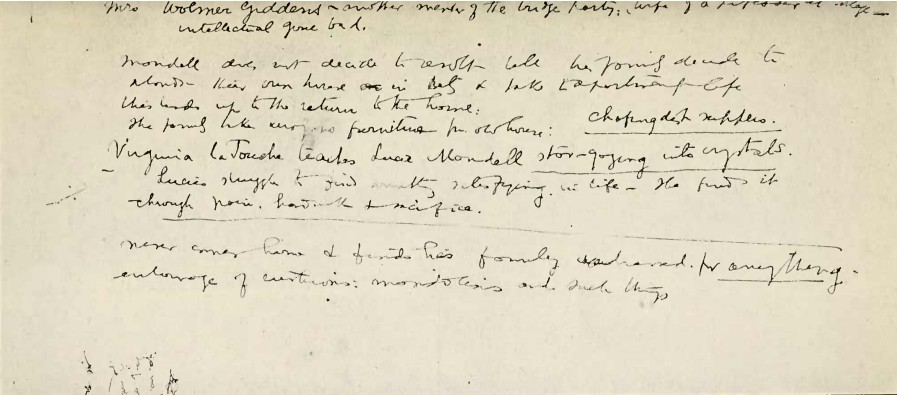 Mrs Wolmer Giddens - another member of the bridge party; wife of a professor at
intellectual gone bad.
Mondell does not decide to revolt till his family decide to
their own house in & take to apartment life
this leads up to the return to the home:
the family take no furniture fr. old house: chafing dish suppers.
Virginia LaTouche teaches Lucie Mondell star-gazing into crystals.
Lucie's struggle to find satisfying in life - she finds it
through pain, hard work & sacrifice.
never comes home & finds his family dressed for anything.
entourage of and such things